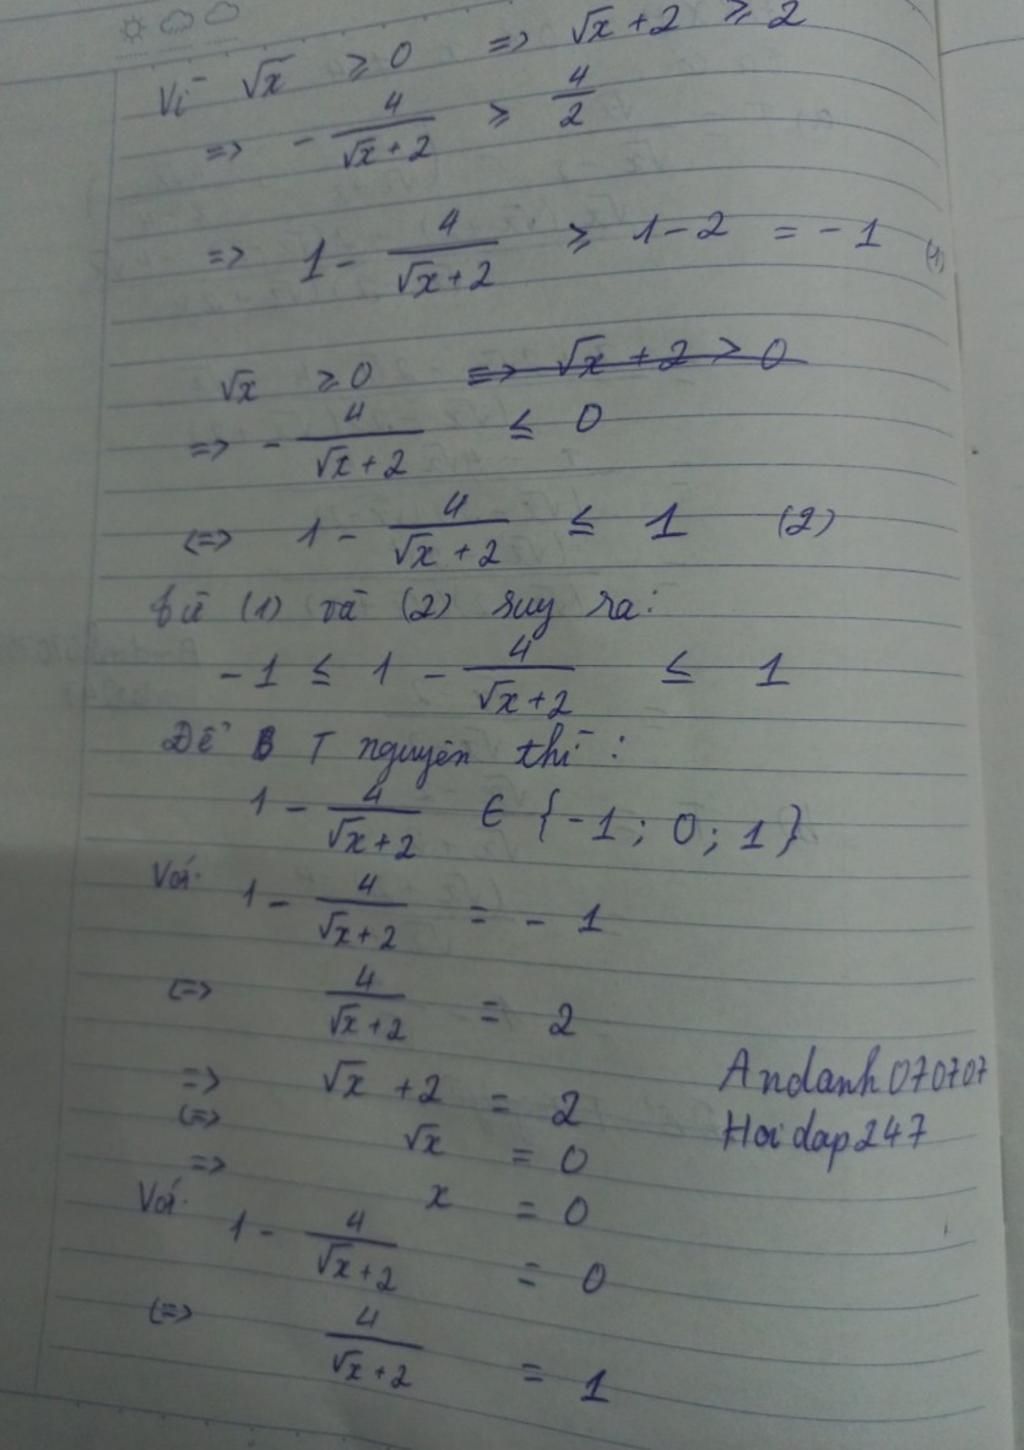 Vì √x ≥ 0 => √x + 2 ≥ 2
=> - 4/(√x + 2) ≥ 4/2
=> 1 - 4/(√x + 2) ≥ 1 - 2 = -1 (1)
√x ≥ 0 => √x + 2 > 0
=> - 4/(√x + 2) ≤ 0
<=> 1 - 4/(√x + 2) ≤ 1 (2)
từ (1) và (2) suy ra:
-1 ≤ 1 - 4/(√x + 2) ≤ 1
Để T nguyên thì:
1 - 4/(√x + 2) ∈ {-1; 0; 1}
Với 1 - 4/(√x + 2) = -1
<=> 4/(√x + 2) = 2
=> √x + 2 = 2
<=> √x = 0
=> x = 0
Andanh070707
Hoidap247
Với 1 - 4/(√x + 2) = 0
<=> 4/(√x + 2) = 1